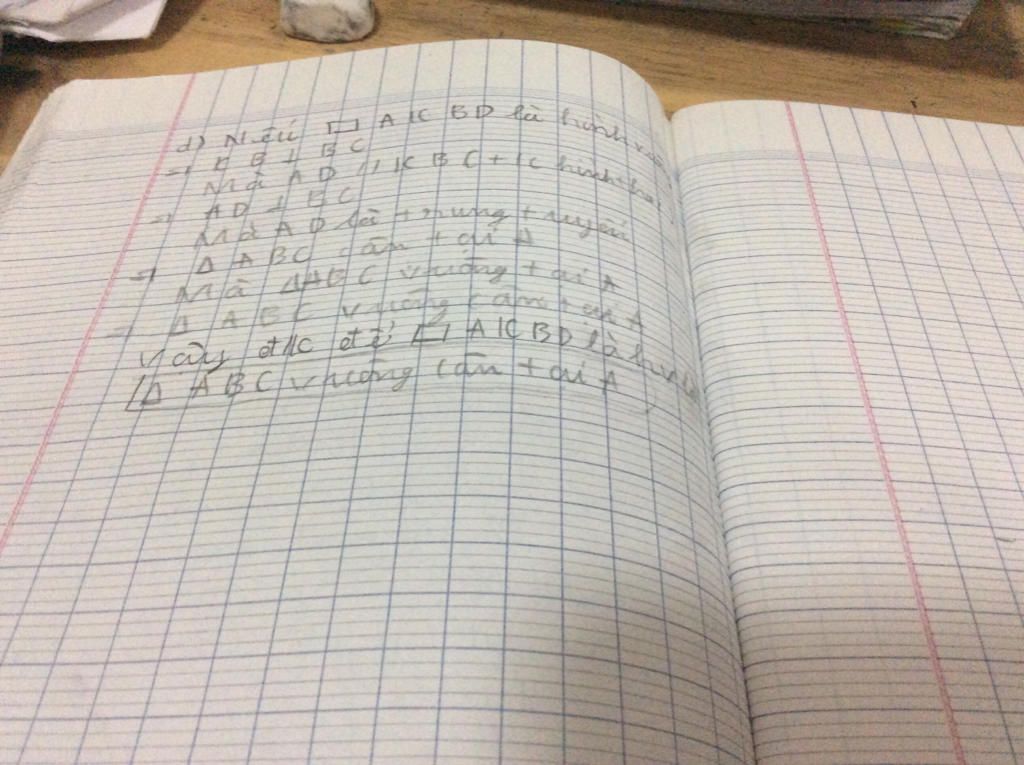 d) Nếu □ AKBD là hình vuông
=> KB ⊥ BC
Mà AD // KB (+/c hình thoi)
=> AD ⊥ BC
Mà AD là trung tuyến
=> Δ ABC cân tại A
Mà ΔABC vuông tại A
=> Δ ABC vuông cân tại A
Vậy đ/k để □ AKBD là hv là
Δ ABC vuông cân tại A